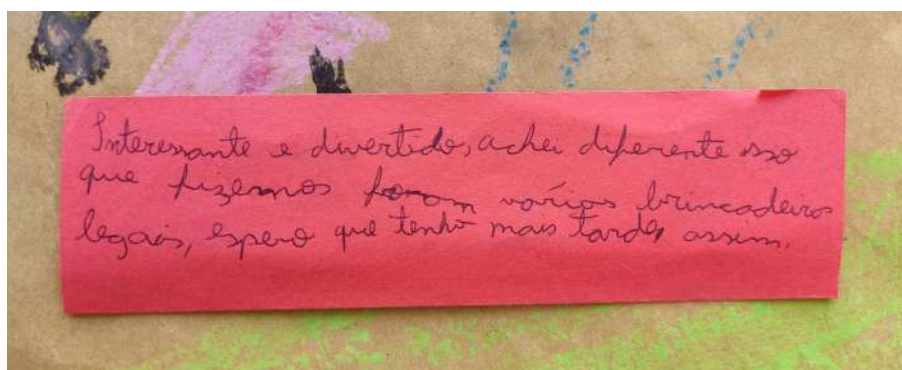 Interessante e divertido, achei diferente isso
que fizemos foram várias brincadeiras
legais, espero que tenha mais tardes assim.